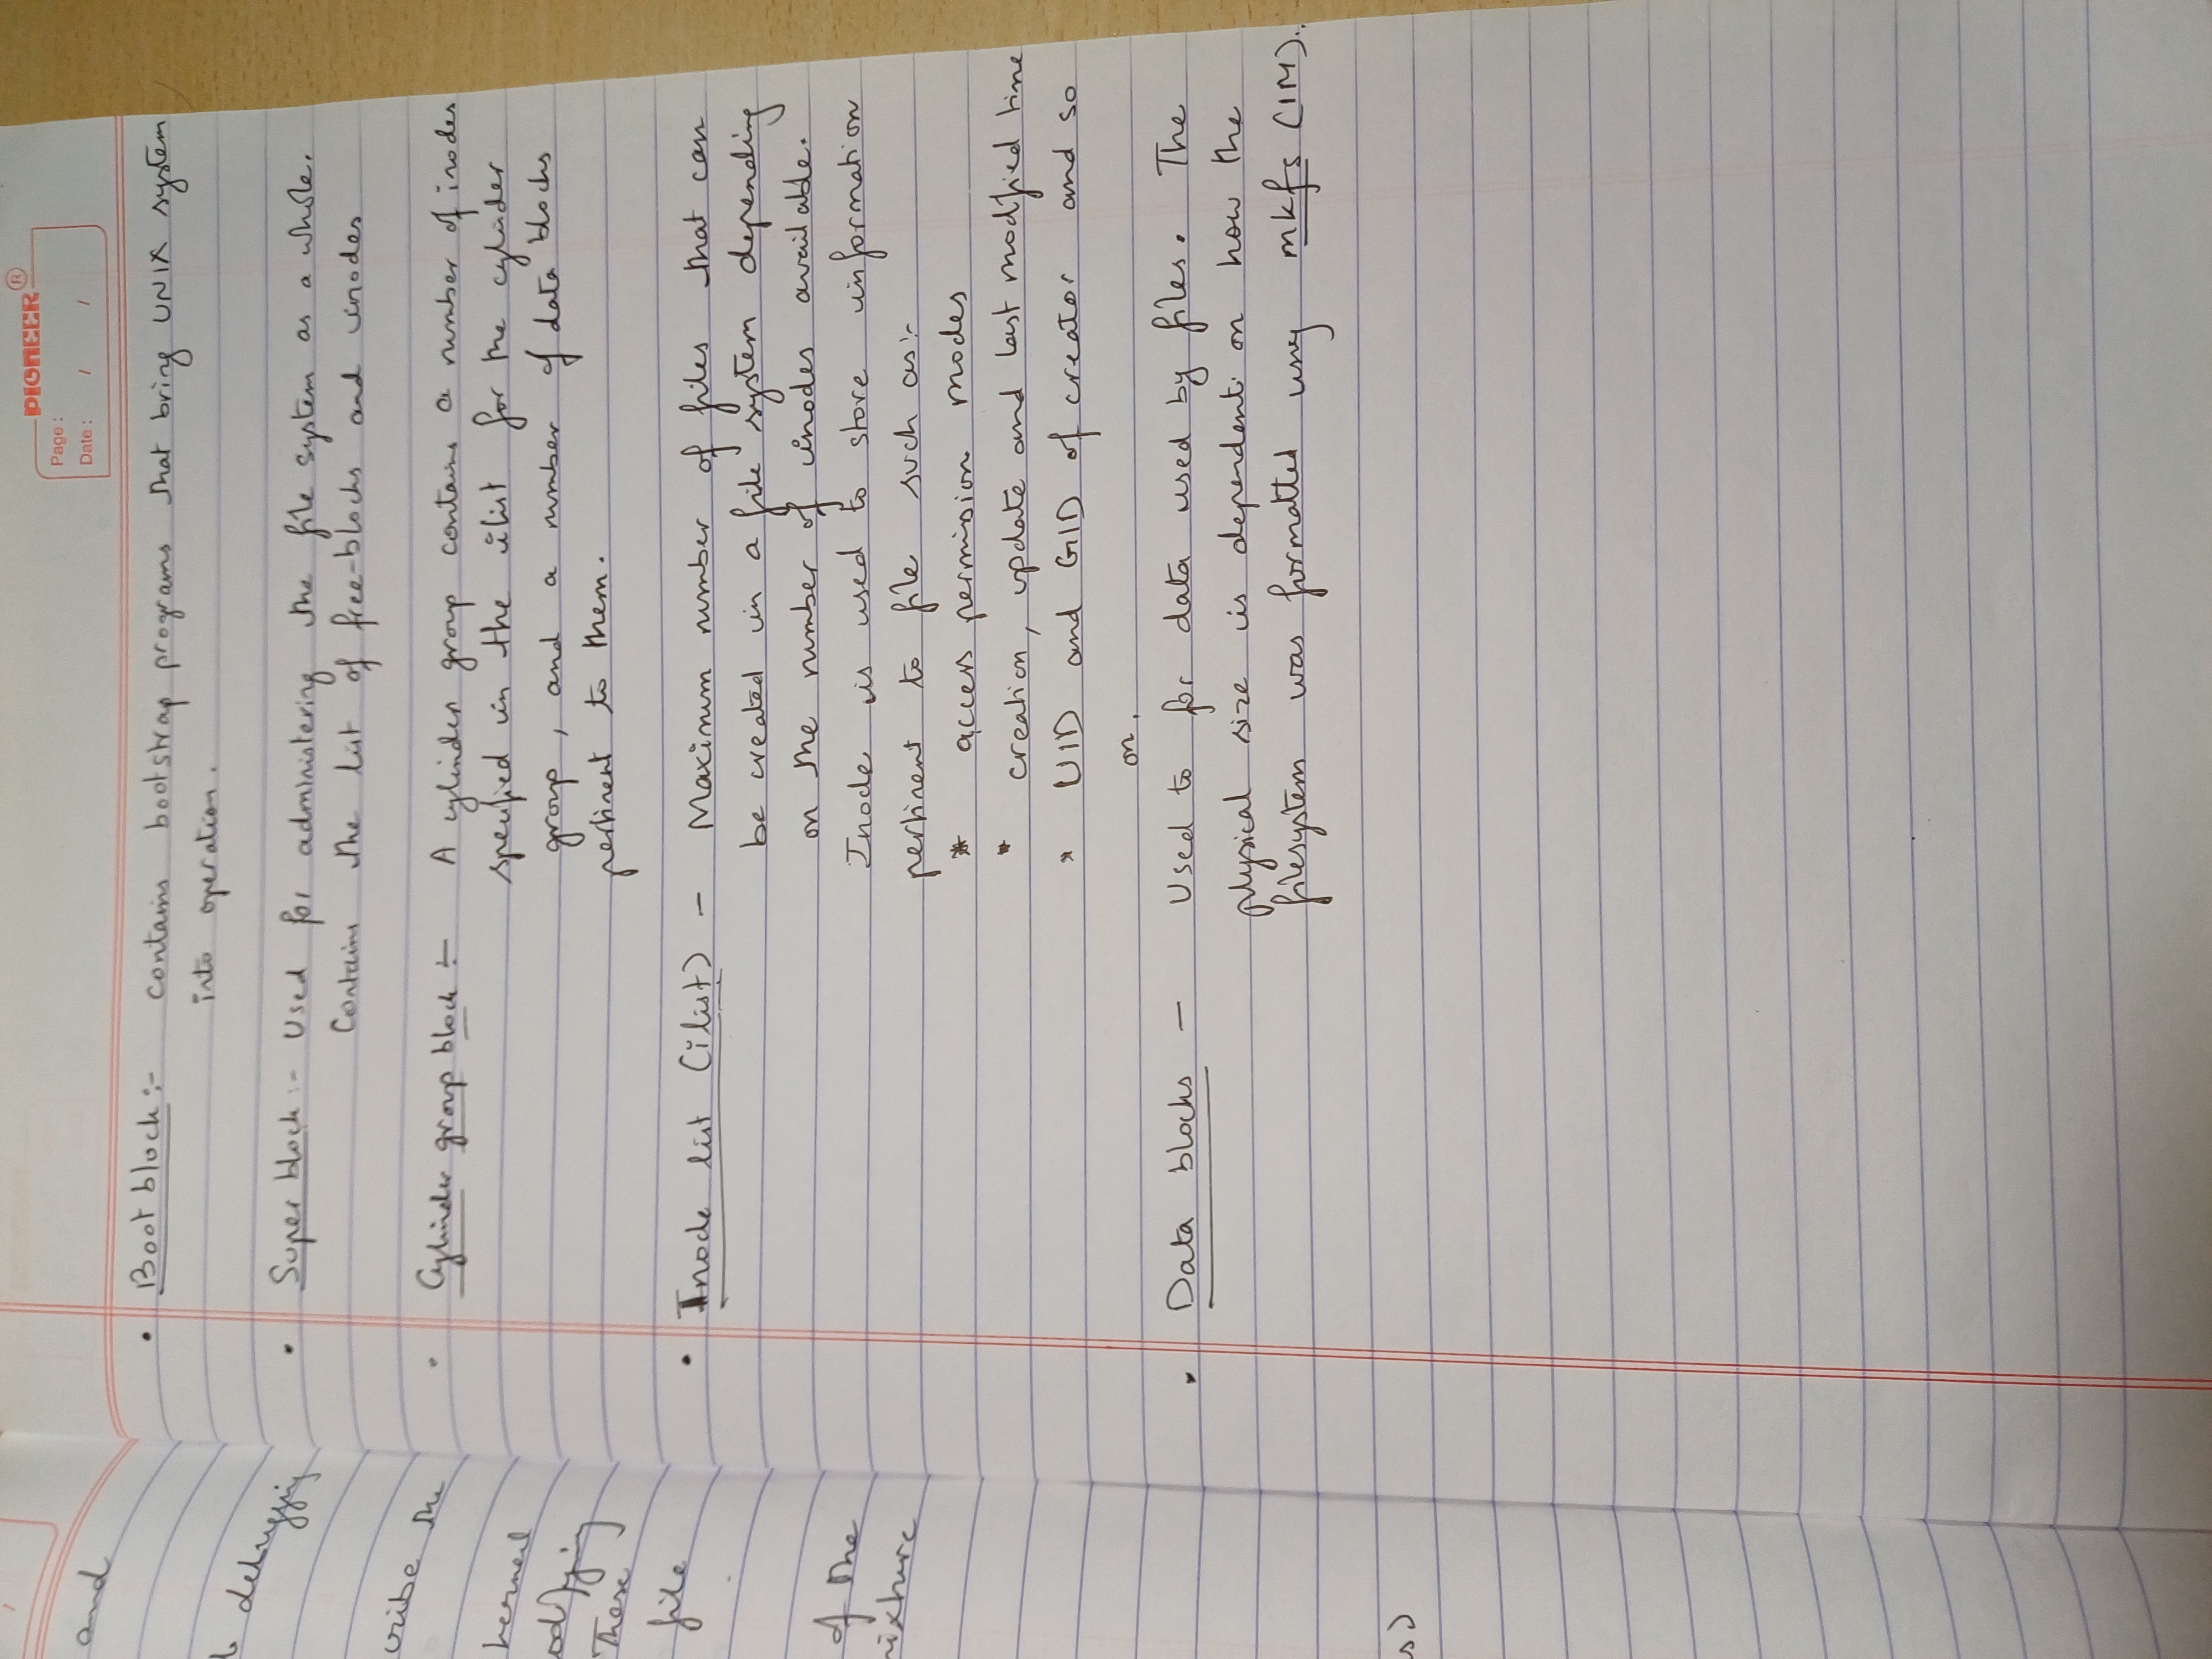 PIONEER®
Page :
Date : / / /
• Boot block :- contains bootstrap programs that bring UNIX system
into operation.
• Super block :- Used for administering the file system as a whole.
Contains the list of free-blocks and inodes
• Cylinder group block :- A cylinder group contains a number of inodes
specified in the ilist for the cylinder
group, and a number of data blocks
pertinent to them.
• Inode list (ilist) - Maximum number of files that can
be created in a file system depending
on the number of inodes available.
Inode is used to store information
pertinent to file such as:-
* access permission modes
* creation, update and last modified time
* UID and GID of creator and so
on.
• Data blocks - Used to for data used by files. The
physical size is dependent on how the
filesystem was formatted using mkfs (1M).
and
debugging
cribe the
kernel
odifying
These
file
of the
ixture
s)